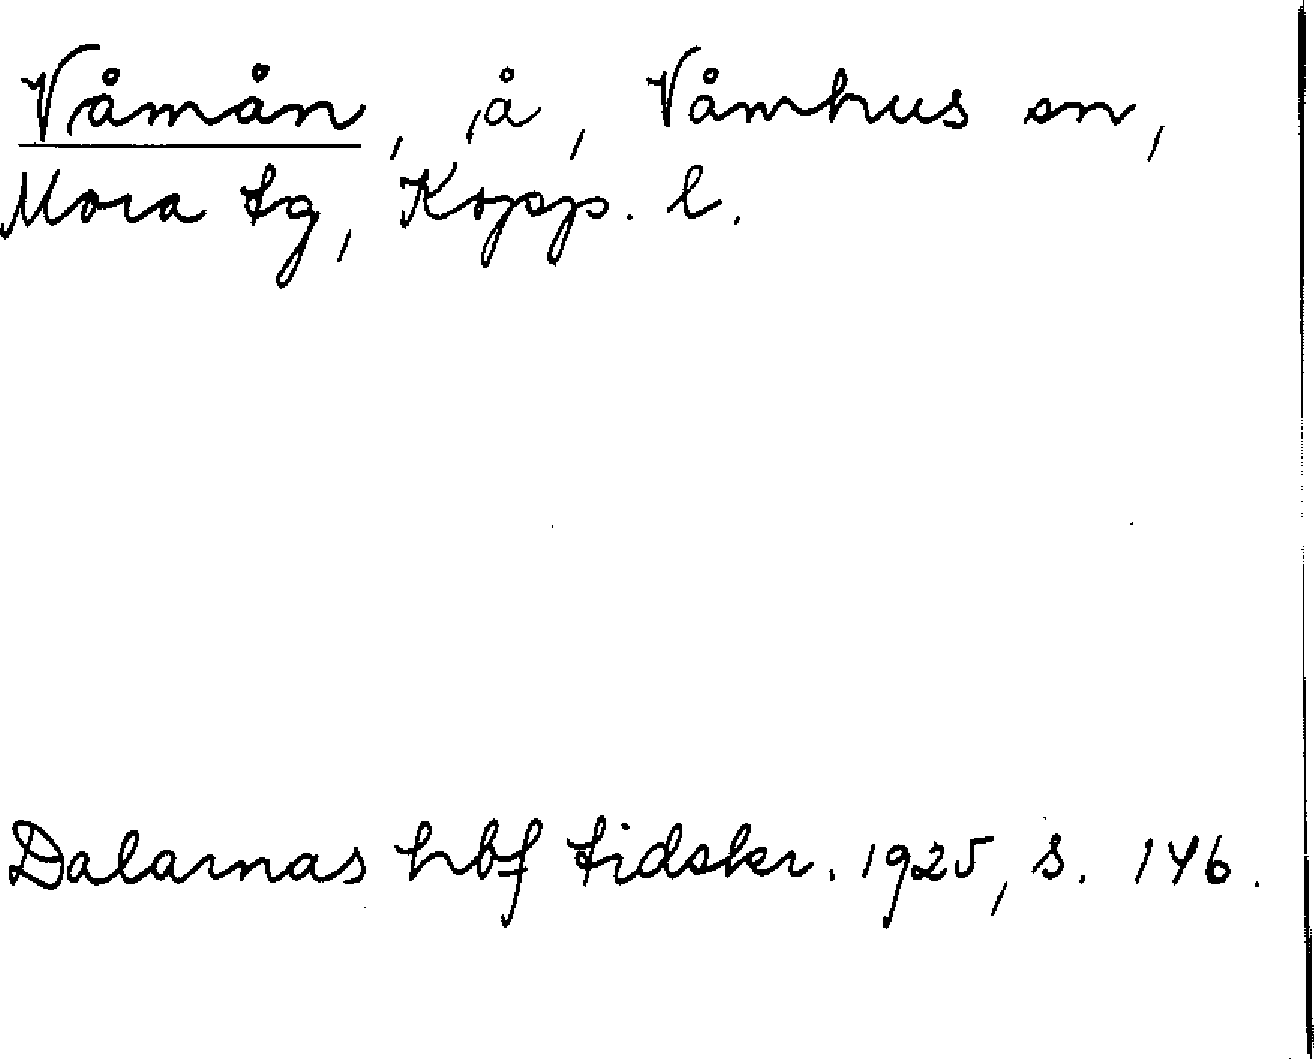 Våmån, å, Våmhus sn,
Mora tg, Kopp. l.
Dalarnas hbf tidskr. 1925, s. 146.